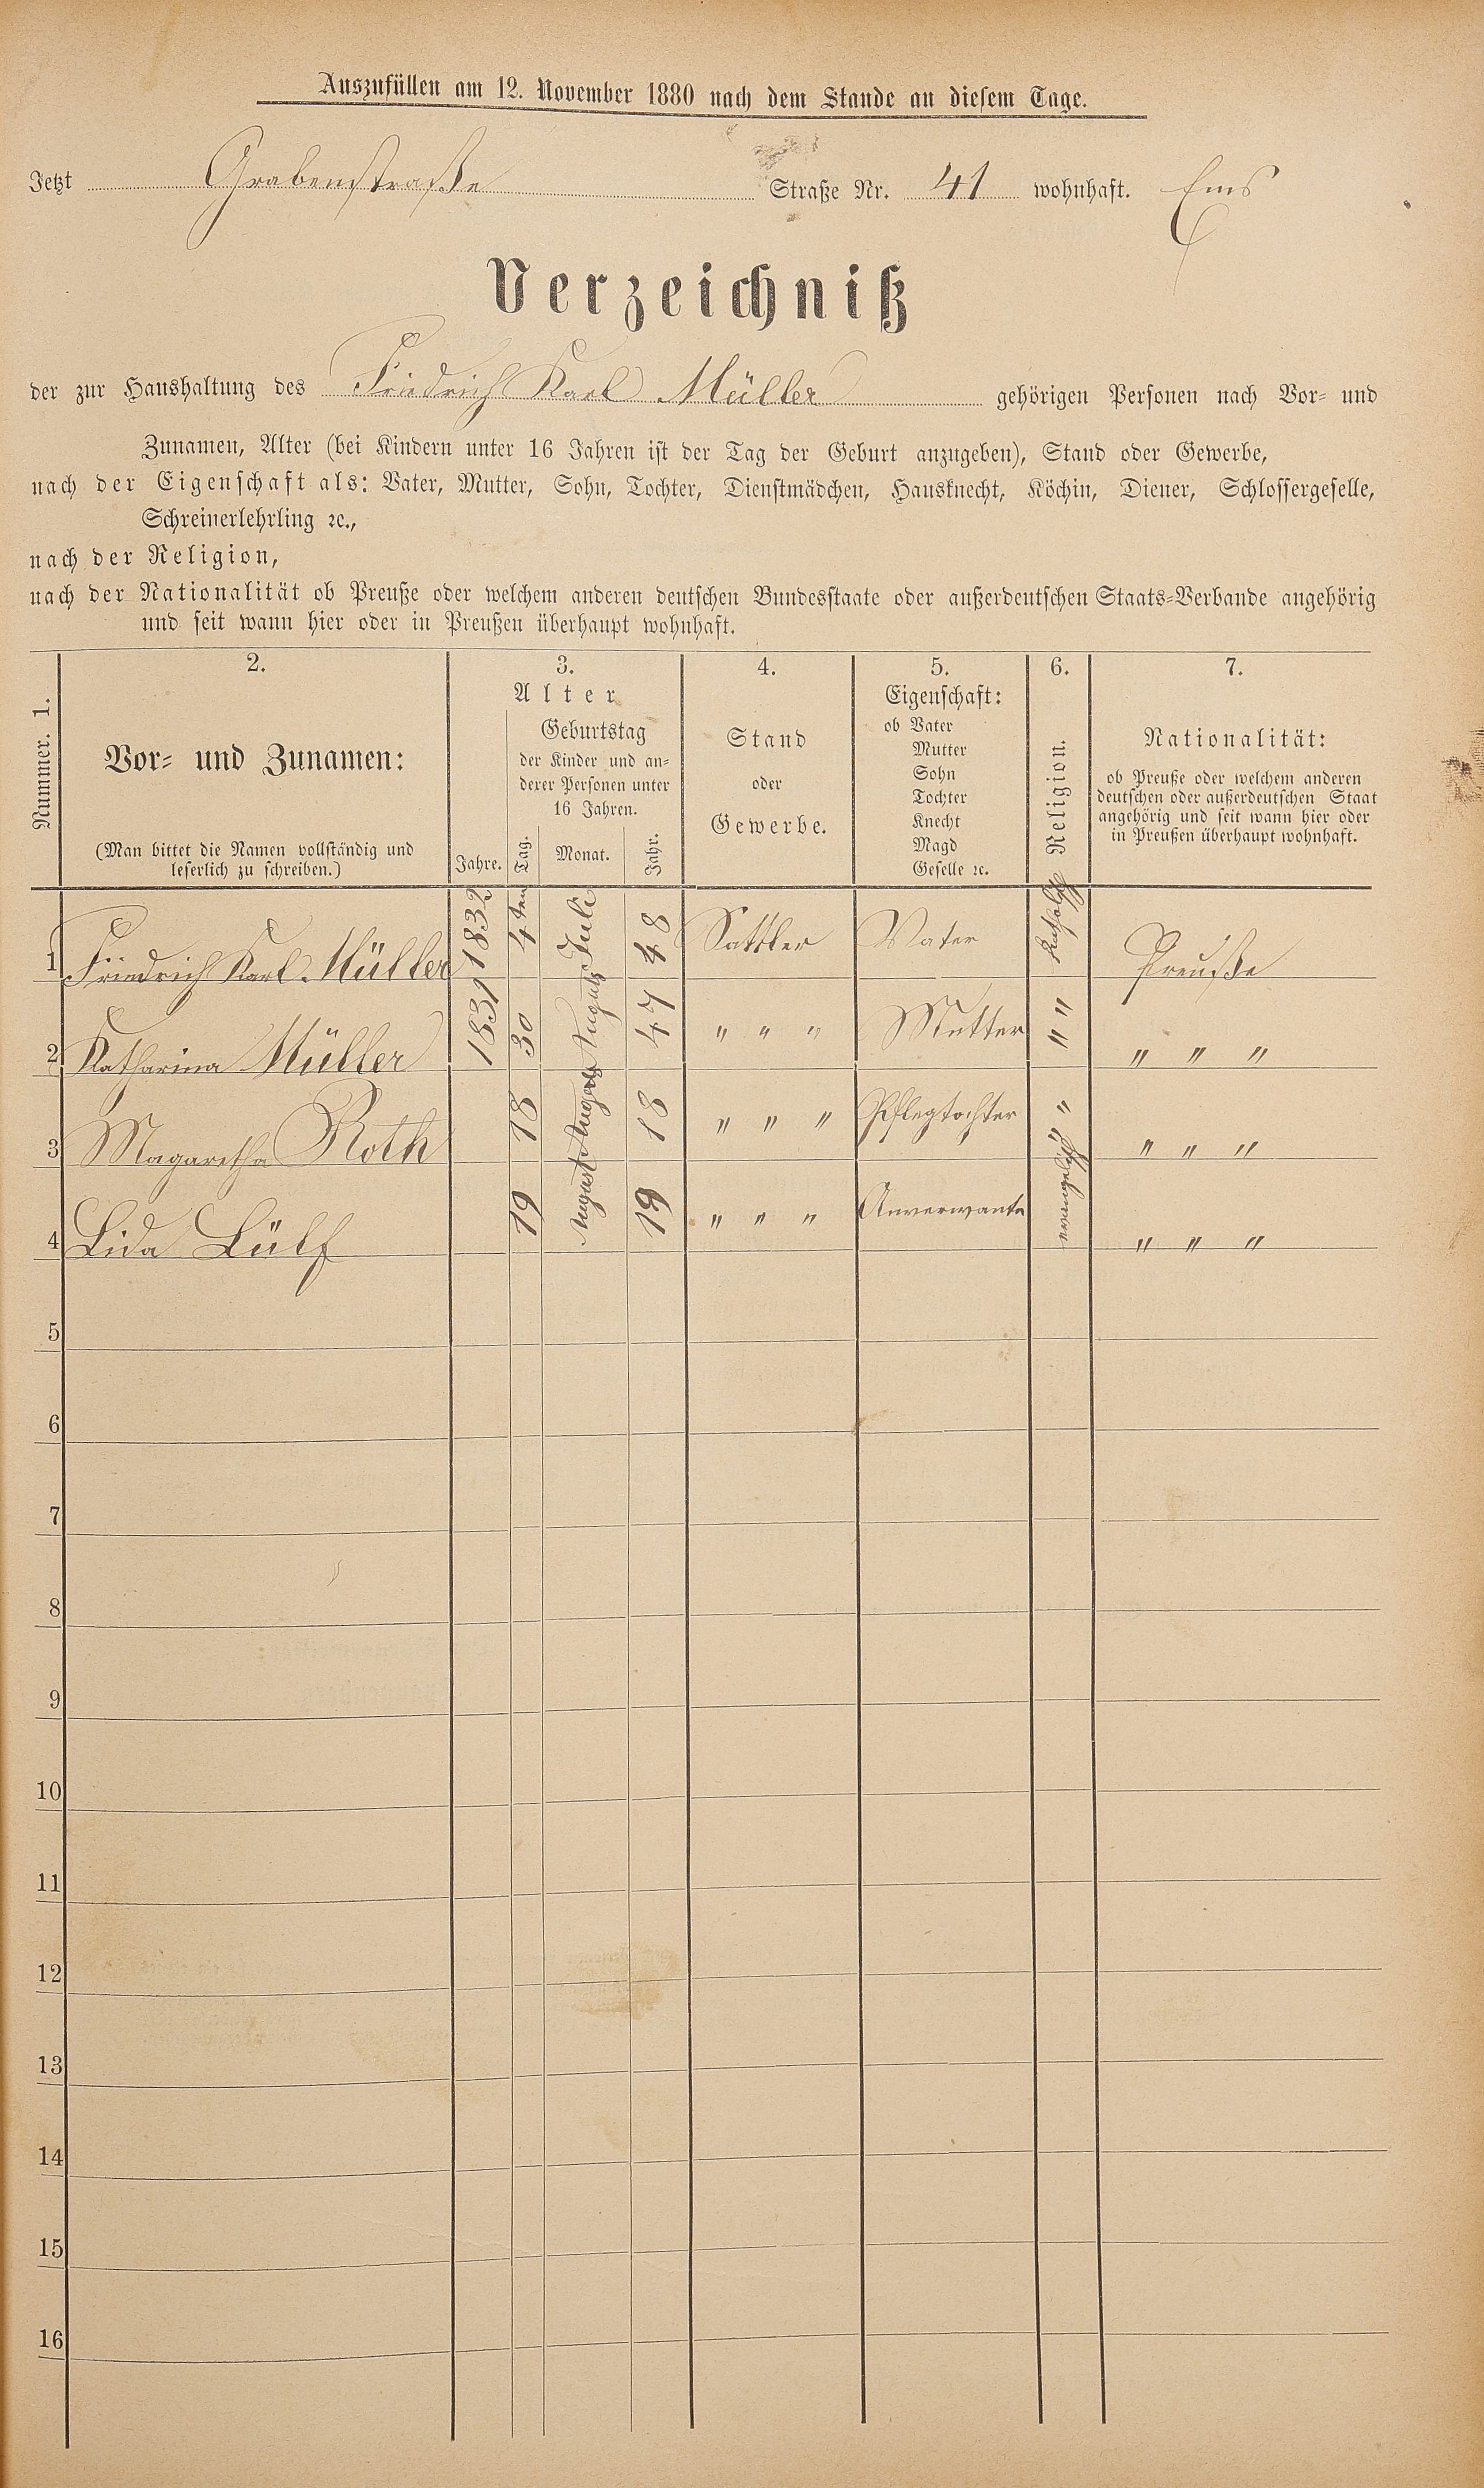 Auszufüllen am 12. November 1880 nach dem Stande an diesem Tage.
Jetzt Grabenstraße Straße Nr. 41 wohnhaft. Ems
Verzeichniß
der zur Haushaltung des Friedrich Karl Müller gehörigen Personen nach Vor- und
Zunamen, Alter (bei Kindern unter 16 Jahren ist der Tag der Geburt anzugeben), Stand oder Gewerbe,
nach der Eigenschaft als: Vater, Mutter, Sohn, Tochter, Dienstmädchen, Hausknecht, Köchin, Diener, Schlossergeselle,
Schreinerlehrling ꝛc.,
nach der Religion,
nach der Nationalität ob Preuße oder welchem anderen deutschen Bundesstaate oder außerdeutschen Staats-Verbande angehörig
und seit wann hier oder in Preußen überhaupt wohnhaft.
Nummer. 1.
2.
Vor- und Zunamen:
(Man bittet die Namen vollständig und
leserlich zu schreiben.)
3.
Alter
Jahre.
Geburtstag
der Kinder und an-
derer Personen unter
16 Jahren.
Tag. Monat. Jahr.
4.
Stand
oder
Gewerbe.
5.
Eigenschaft:
ob Vater
Mutter
Sohn
Tochter
Knecht
Magd
Geselle ꝛc.
6.
Religion.
7.
Nationalität:
ob Preuße oder welchem anderen
deutschen oder außerdeutschen Staat
angehörig und seit wann hier oder
in Preußen überhaupt wohnhaft.
1 Friedrich Karl Müller 1832 4ten Juli 48 Sattler Vater Katholisch Preuße
2 Katharina Müller 1831 30 47 " " " Mutter " " " " "
3 Magaretha Roth 18 18 " " " Pflegtochter " " " " "
4 Lida Lülf 19 August 19 " " " Anverwante evangelisch " " "
5
6
7
8
9
10
11
12
13
14
15
16